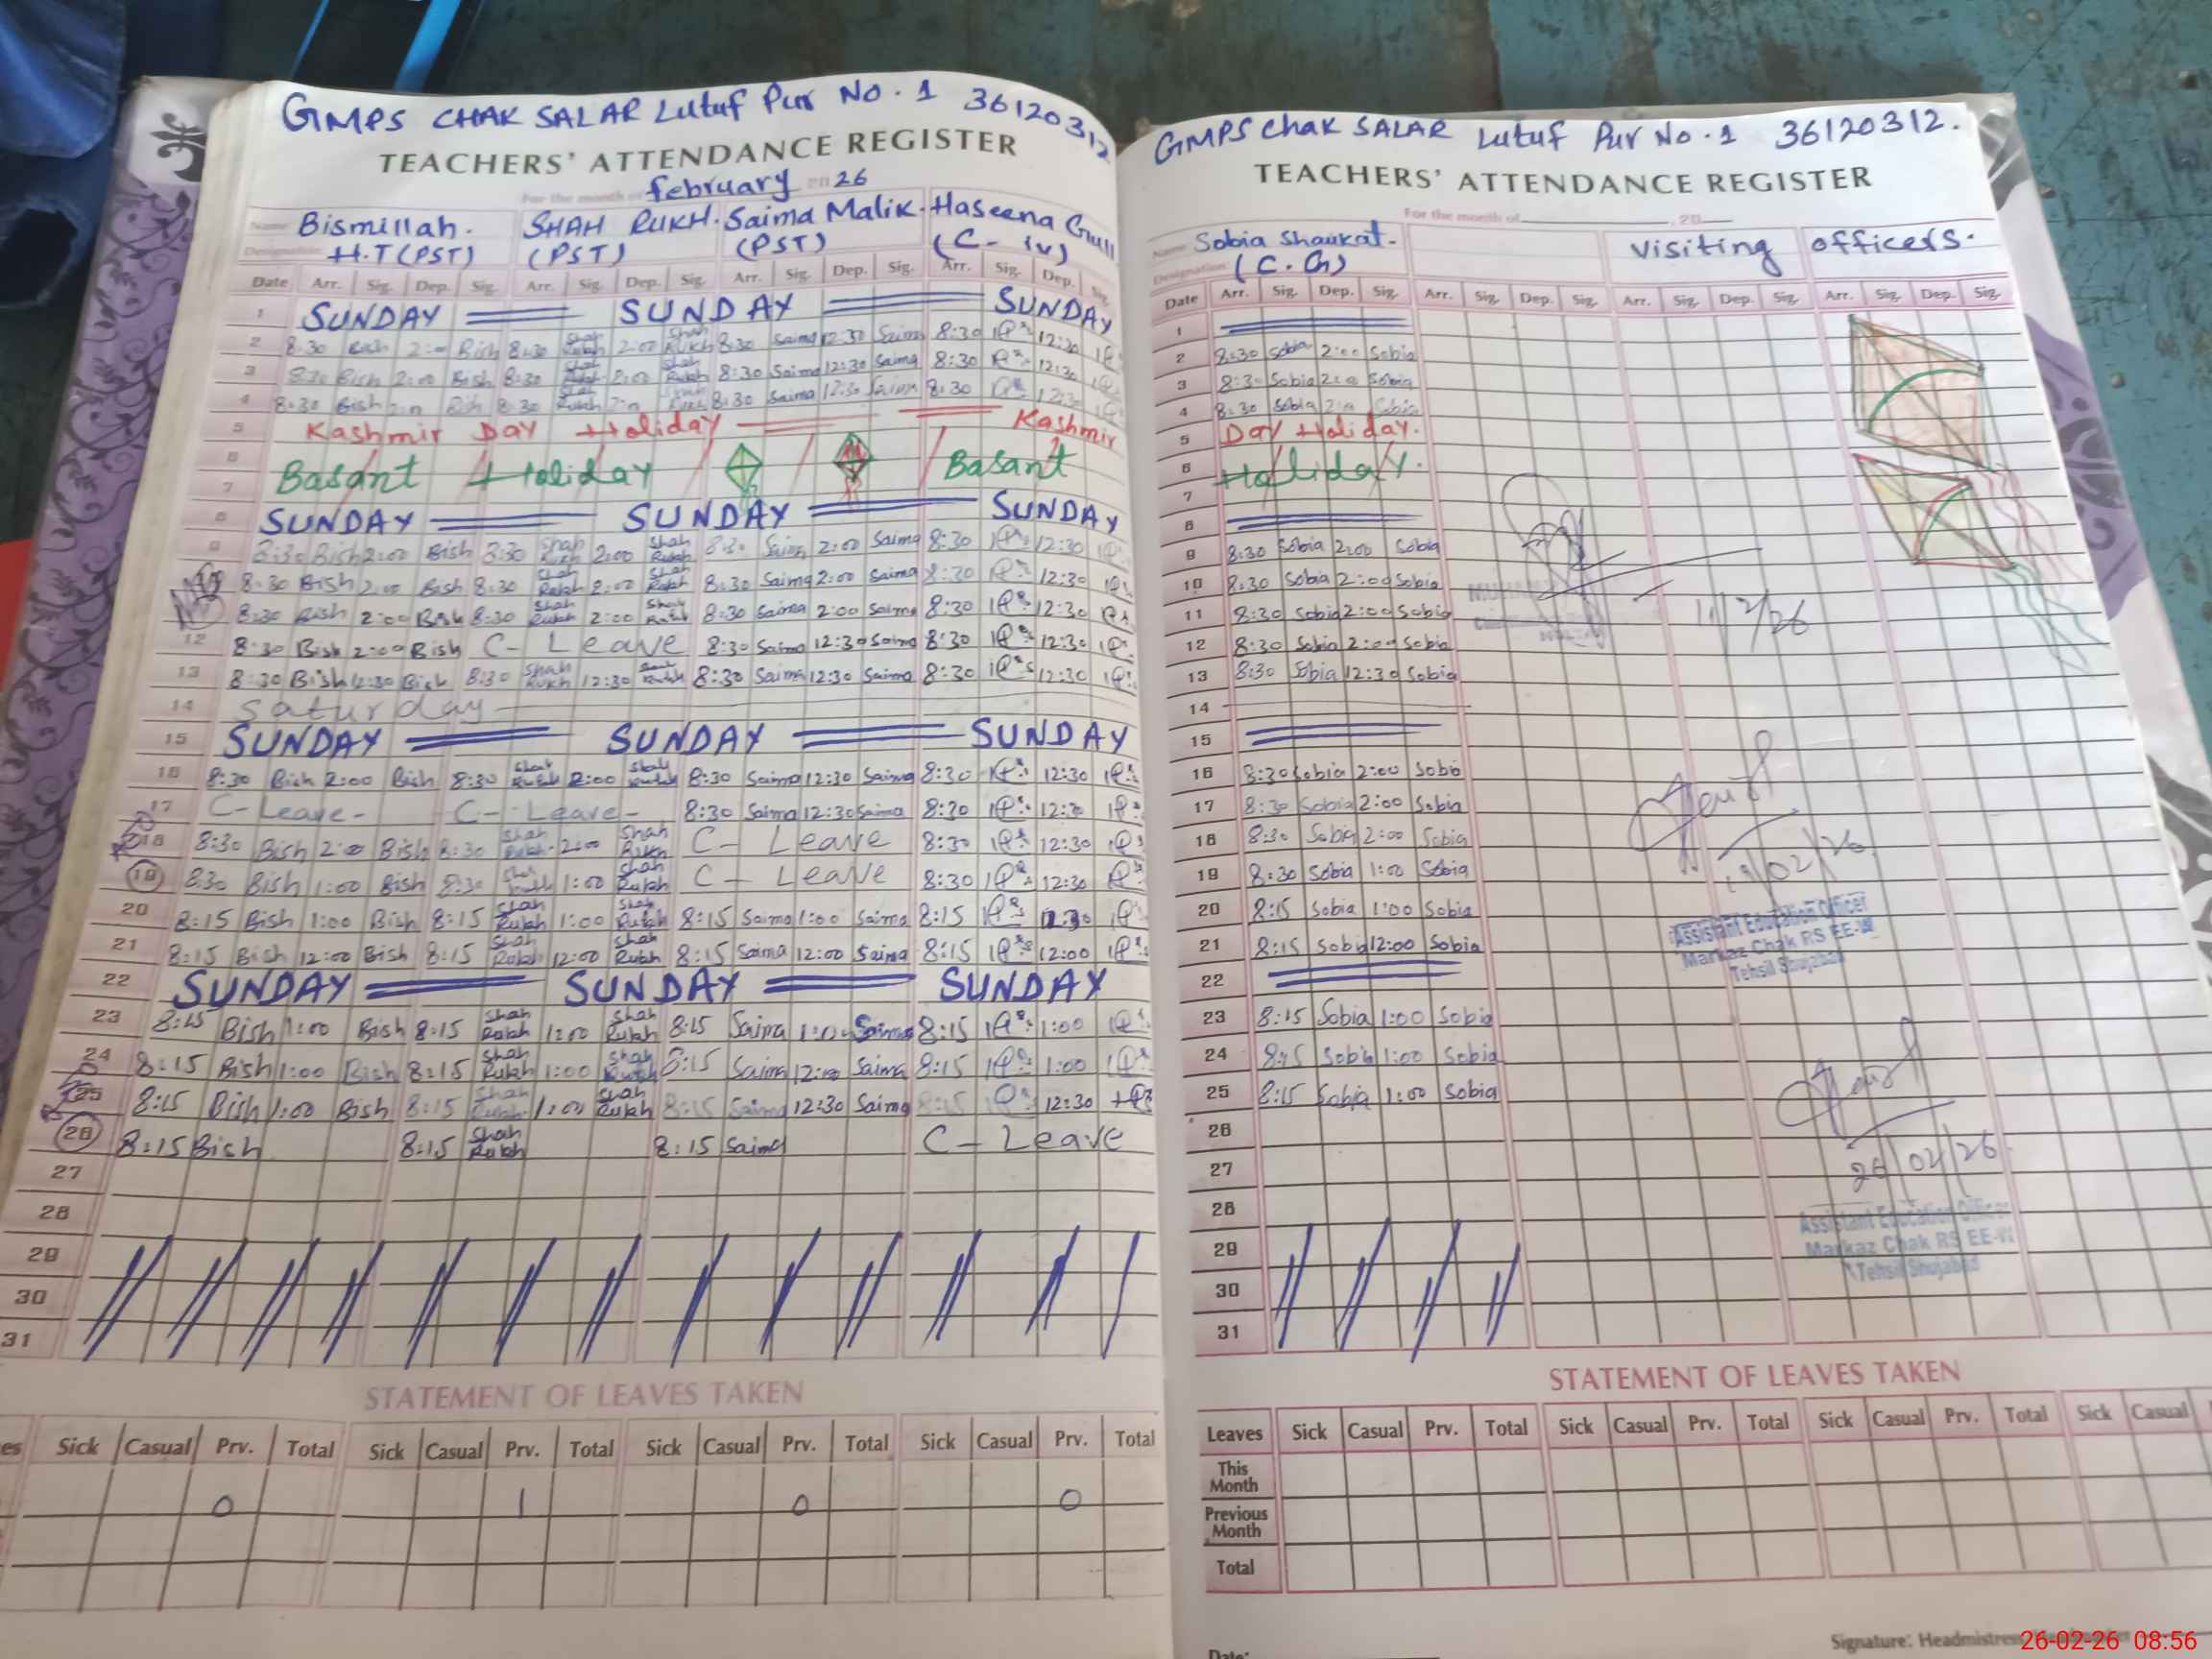 GMPS CHAK SALAR Lutuf Pur No. 1 36120312
TEACHERS' ATTENDANCE REGISTER
For the month of february 2026
Name Bismillah. SHAH RUKH. Saima Malik. Haseena Gull
Designation H.T (PST) (PST) (PST) (C- iv)
Date Arr. Sig. Dep. Sig. Arr. Sig. Dep. Sig. Arr. Sig. Dep. Sig. Arr. Sig. Dep. Sig.
1 SUNDAY SUNDAY SUNDAY
2 8:30 Bish 2:00 Bish 8:30 Shah Rukh 2:00 Shah Rukh 8:30 Saima 12:30 Saima 8:30 12:30
3 8:30 Bish 2:00 Bish 8:30 Shah Rukh 2:00 Shah Rukh 8:30 Saima 12:30 Saima 8:30 12:30
4 8:30 Bish Bish 8:30 Shah Rukh 8:30 Saima 12:30 Saima 8:30 12:30
5 Kashmir DAY Holiday Kashmir
6 Basant Holiday Basant
7
8 SUNDAY SUNDAY SUNDAY
9 8:30 Bish 2:00 Bish 8:30 Shah Rukh 2:00 Shah Rukh 8:30 Saima 2:00 Saima 8:30 12:30
8:30 Bish 2:00 Bish 8:30 Shah Rukh 2:00 Shah Rukh 8:30 Saima 2:00 Saima 8:30 12:30
8:30 Bish 2:00 Bish 8:30 Shah Rukh 2:00 Shah Rukh 8:30 Saima 2:00 Saima 8:30 12:30
12 8:30 Bish 2:00 Bish C- Leave 8:30 Saima 12:30 Saima 8:30 12:30
13 8:30 Bish 12:30 Bish 8:30 Shah Rukh 12:30 Shah Rukh 8:30 Saima 12:30 Saima 8:30 12:30
14 Saturday
15 SUNDAY SUNDAY SUNDAY
16 8:30 Bish 2:00 Bish 8:30 Shah Rukh 2:00 Shah Rukh 8:30 Saima 12:30 Saima 8:30 12:30
17 C-Leave- C-Leave- 8:30 Saima 12:30 Saima 8:30 12:30
18 8:30 Bish 2:00 Bish 8:30 Shah Rukh 2:00 Shah Rukh C- Leave 8:30 12:30
19 8:30 Bish 1:00 Bish 8:30 Shah Rukh 1:00 Shah Rukh C- Leave 8:30 12:30
20 8:15 Bish 1:00 Bish 8:15 Shah Rukh 1:00 Shah Rukh 8:15 Saima 1:00 Saima 8:15 12:30
21 8:15 Bish 12:00 Bish 8:15 Shah Rukh 12:00 Shah Rukh 8:15 Saima 12:00 Saima 8:15 12:00
22 SUNDAY SUNDAY SUNDAY
23 8:15 Bish 1:00 Bish 8:15 Shah Rukh 1:00 Shah Rukh 8:15 Saima 1:00 Saima 8:15 1:00
24 8:15 Bish 1:00 Bish 8:15 Shah Rukh 1:00 Shah Rukh 8:15 Saima 12:00 Saima 8:15 1:00
25 8:15 Bish 1:00 Bish 8:15 Shah Rukh 1:00 Shah Rukh 8:15 Saima 12:30 Saima 8:15 12:30
26 8:15 Bish 8:15 Shah Rukh 8:15 Saima C- Leave
27
28
29
30
31
STATEMENT OF LEAVES TAKEN
es Sick Casual Prv. Total Sick Casual Prv. Total Sick Casual Prv. Total Sick Casual Prv. Total
0 1 0 0
GMPS Chak SALAR Lutuf Pur No. 1 36120312.
TEACHERS' ATTENDANCE REGISTER
For the month of 20
Name Sobia Shaukat. Visiting officers.
Designation (C. G)
Date Arr. Sig. Dep. Sig. Arr. Sig. Dep. Sig. Arr. Sig. Dep. Sig. Arr. Sig. Dep. Sig.
1
2 8:30 Sobia 2:00 Sobia
3 8:30 Sobia Sobia
4 8:30 Sobia Sobia
5 Day Holiday.
6 Holiday.
7
8
9 8:30 Sobia 2:00 Sobia
10 8:30 Sobia 2:00 Sobia
11 8:30 Sobia 2:00 Sobia 11/2/26
12 8:30 Sobia 2:00 Sobia
13 8:30 Sobia 12:30 Sobia
14
15
16 8:30 Sobia 2:00 Sobia
17 8:30 Sobia 2:00 Sobia
18 8:30 Sobia 2:00 Sobia
19 8:30 Sobia 1:00 Sobia 19/02/26
20 8:15 Sobia 1:00 Sobia
21 8:15 Sobia 12:00 Sobia
Assistant Education Officer
Markaz Chak RS EE-
Tehsil Shujabad
22
23 8:15 Sobia 1:00 Sobia
24 8:15 Sobia 1:00 Sobia
25 8:15 Sobia 1:00 Sobia
26
27 26/02/26
28
Assistant Education Officer
Markaz Chak RS EE-
Tehsil Shujabad
29
30
31
STATEMENT OF LEAVES TAKEN
Leaves Sick Casual Prv. Total Sick Casual Prv. Total Sick Casual Prv. Total Sick Casual
This Month
Previous Month
Total
Date:
Signature: Headmistress
26-02-26 08:56